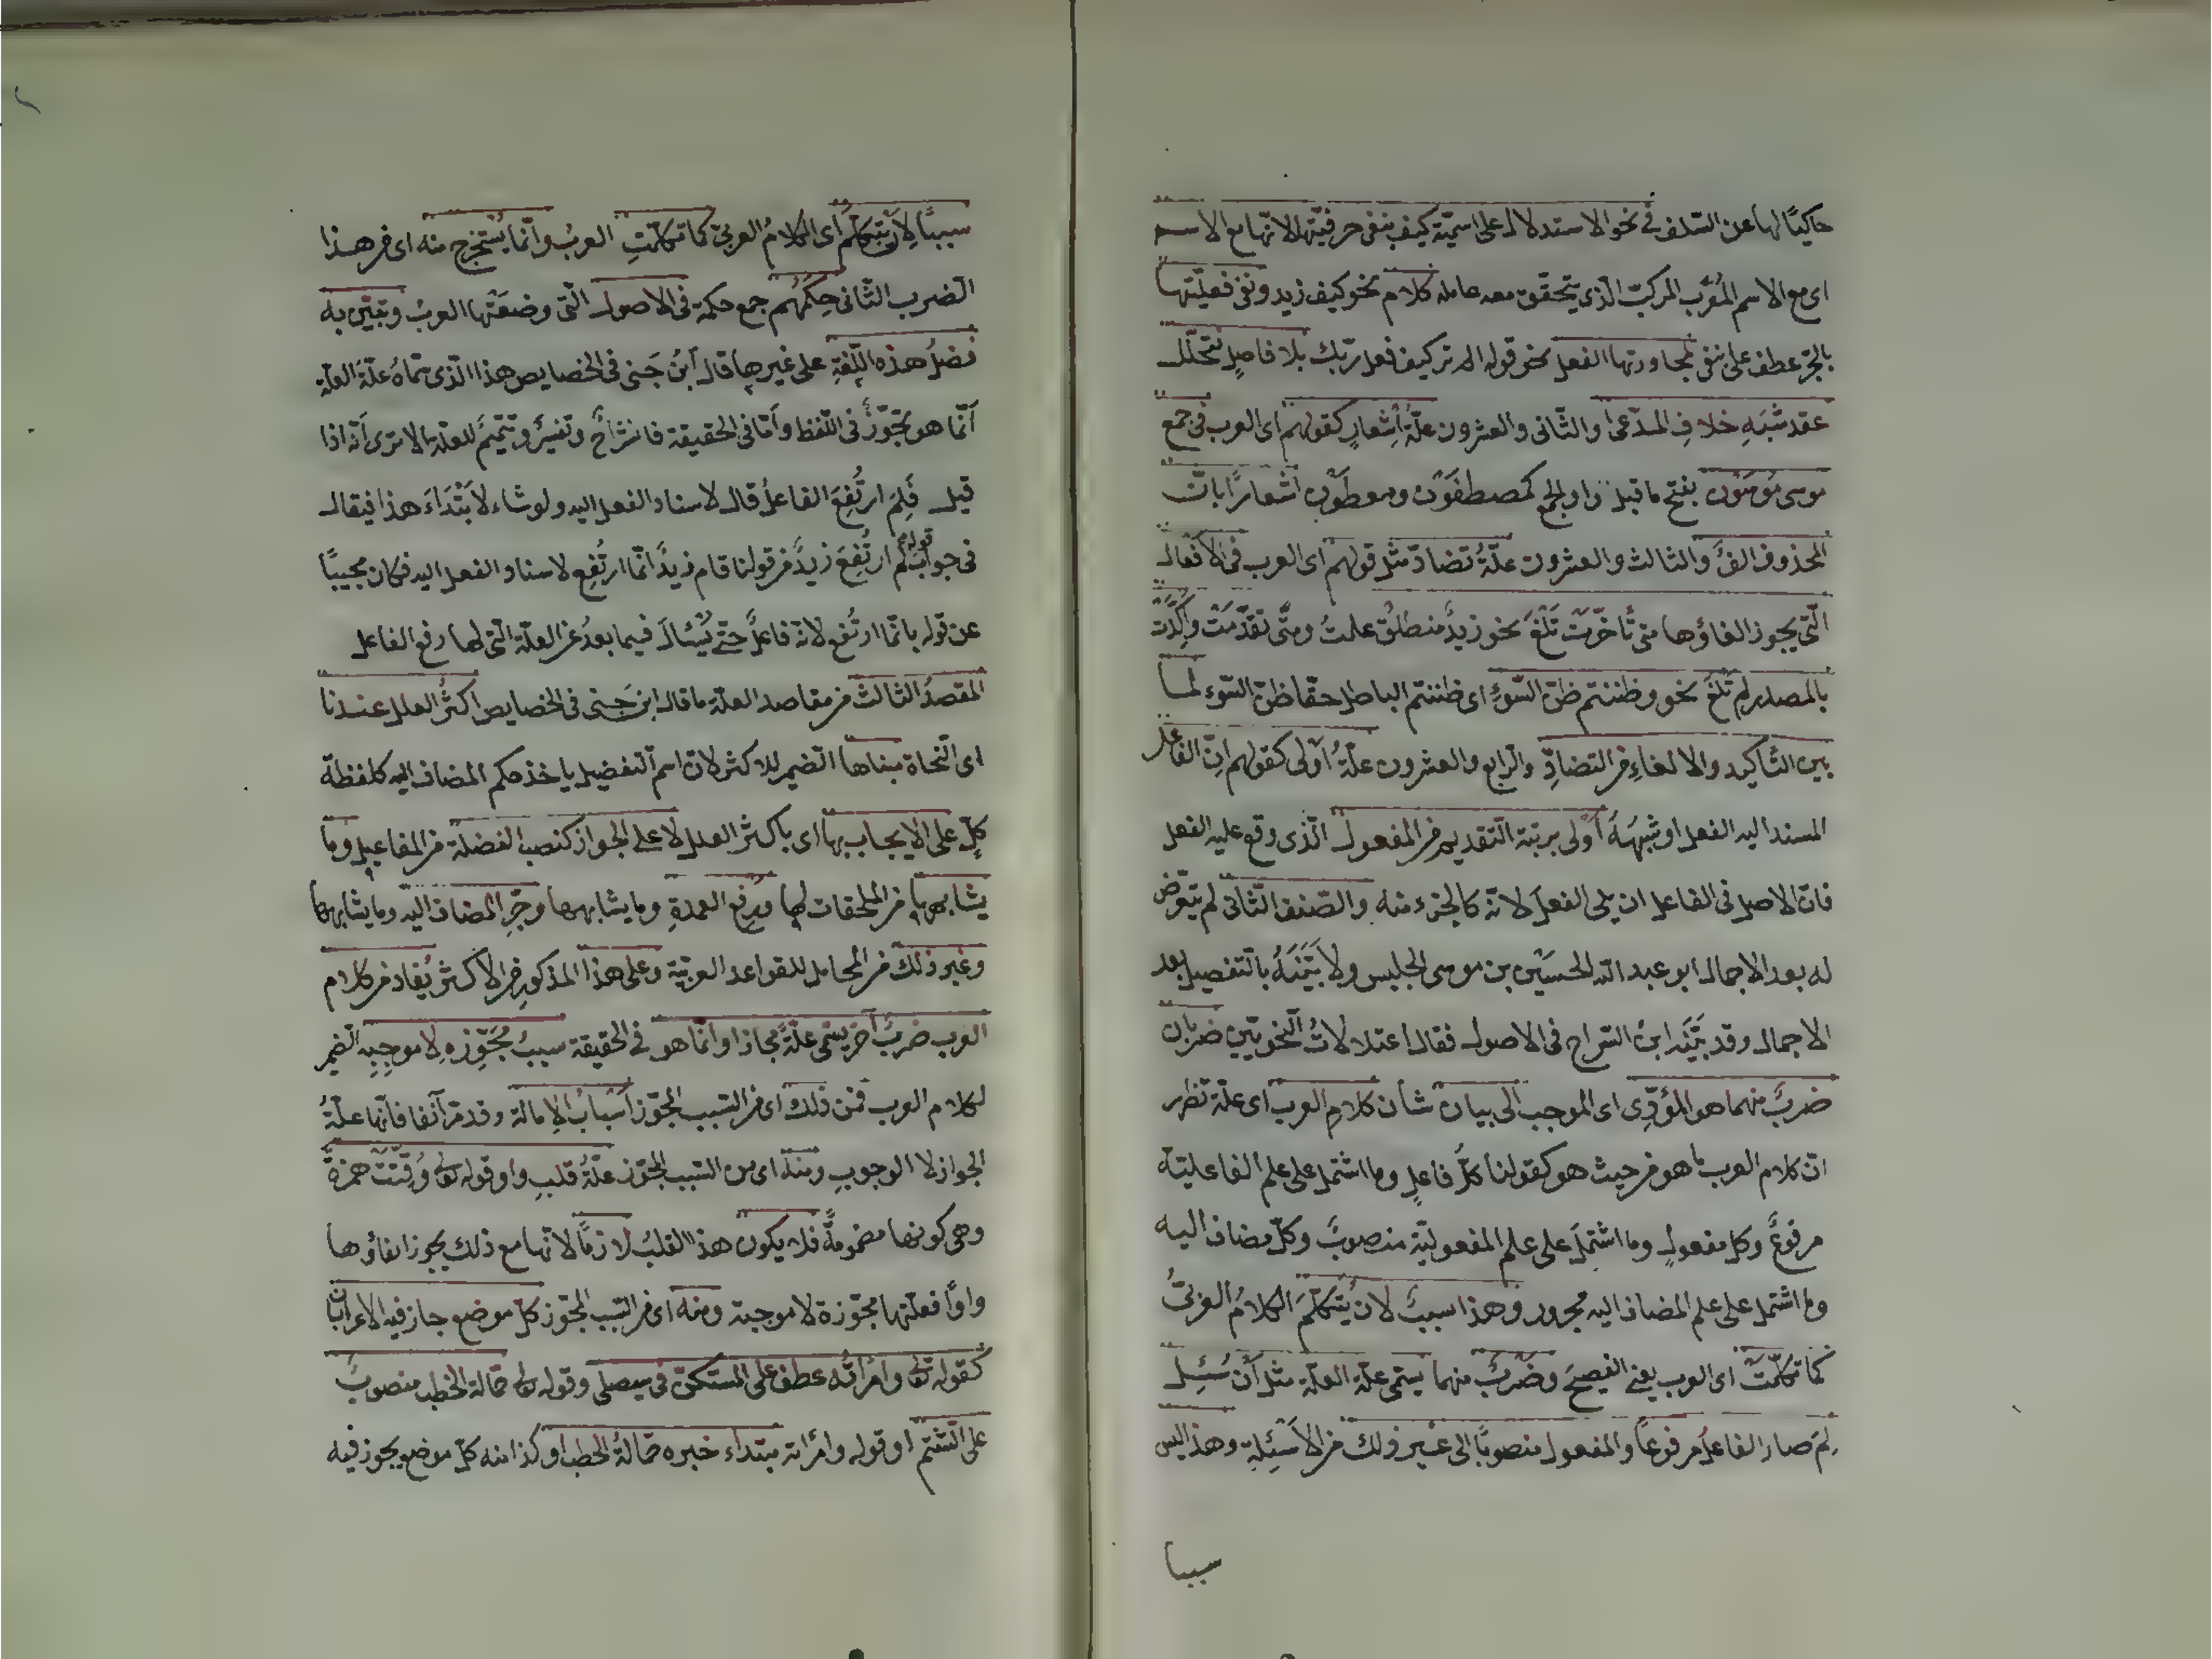 حاكيًا لها عن السّلف فى نحو الاستدلال على اسميّة كيف بنفى حرفيّتها لانّها مع الاسم
اى مع الاسم المُعرَب المركبّ الّذى يتحقّق معه عامله كلام نحو كيف زيد ونفى فعليّتها
بالجرّ عطف على نفى لمجاورتها الفعل نحو قوله الم تر كيف فعل ربّك بلا فاصلٍ نتحلّل
عقد شُبَهِ خلافِ المدّعى والثّانى والعشرون علّةُ اِشعارٍ كقولهم اى العرب فى جمع
موسى مُوسَوْن بفتح ما قبل واو الجمع كمصطفَوْن ومعطَوْن اشعارًا بانّ
المحذوف الفٌ والثالث والعشرون علّةُ تضادّ مثل قولهم اى العرب فى الافعال
الّتى يجوز الغاؤها متى تأخّرت تَلْغَ نحو زيدٌ منطلقٌ علمتُ ومتى تقدّمَتْ واُكِّدَتْ
بالمصدر لم تَلْغَ نحو وظننتم ظنّ السَّوءِ اى ظننتم الباطل حقّا ظنّ السّوء لما
بين التّأكيد والالغاءِ من التضادِّ والرّابع والعشرون علّةُ اَولى كقولهم انّ الفاعل
المسند اليه الفعل او شِبهُهُ اَولى برتبة التّقديم من المفعول الّذى وقع عليه الفعل
فانّ الاصل فى الفاعل ان يلى الفعل لانّه كالجزء منه والصّنف الثّانى لم يتعرّض
له بعد الاجمال ابو عبد الله الحسَيْن بن موسى الجليس ولا بَيَّنَهُ بالتّفصيل بعد
الاجمال وقد بَيَّنَه ابن السّراج فى الاصول فقال اعتلالاتُ النّحويّين ضربان
ضربٌ منهما هو المؤدِّى اى الموجب الى بيان شأن كلامِ العرب اى علّة تظهر
انّ كلام العرب ما هو من حيث هو كقولنا كلُّ فاعلٍ وما اشتمل على علم الفاعليّة
مرفوعٌ وكل مفعولٍ وما اشتملَ على علم المفعوليّة منصوبٌ وكلّ مضاف اليه
وما اشتمل على علم المضاف اليه مجرور وهذا سببٌ لان يُتكلّمَ الكلامُ العربىُّ
كما تكلّمَتْ اى العرب يعنى الفصيحَ وضربٌ منهما يسمّى علّة العلّة مثل اَنْ سُئِل
لِمَ صار الفاعلُ مرفوعاً والمفعول منصوبًا الى غير ذلك من الاَسئِلةِ وهذا ليس
سببا
سببًا لِاَنْ يُتكلّمَ اى الكلامُ العربىّ كما تكلّمَتِ العربُ وانّما يُستخرج منه اى من هذا
الضرب الثّانى حِكَمُهُم جمع حكمة فى الاصول الّتى وضعَتْها العربُ وتبيّن به
فضلُ هذه اللّغةِ على غيرها قال ابنُ جَنى فى الخصايص هذا الّذى سمّاهُ علّةَ العلّة
انّما هو تجوّزٌ فى اللّفظ وامّا فى الحقيقة فانشراحٌ وتفسيرٌ وتتميمٌ للعلّة الا ترى اَنّه اذا
قيل فَلِمَ ارتُفِعَ الفاعلُ قال لاسناد الفعل اليه ولو شاء لابتداءَ هذا فيقال
فى جواب قوله لِم ارتُفِعَ زيدٌ من قولنا قام زيدٌ انّما ارتُفِع لاسناد الفعل اليه فكان مجيبًا
عن قوله بانّما ارتُفع لانّه فاعلٌ حتّى يُسْئال فيما بعدُ عن العلّة الّتى لها رفع الفاعل
المقصدُ الثّالث من مقاصد العلّة ما قال ابن جَنى فى الخصايص اكثرُ العلل عندنا
اى النّحاة مبناها الضمير للاكثر لانّ اسم التّفضيل ياخذ حكم المضاف اليه كلفظة
كلّ على الايجاب بها اى باكثر العلل لا على الجواز كنصب الفضلة من المفاعيل وما
يشابهها من الملحقات لها ورفع العمدةِ وما يشابهها وجرّ المضاف اليه وما يشابهها
وغير ذلك من المحامل للقواعد العربيّة وعلى هذا المذكورِ من الاكثر يُفاد من كلام
العرب ضربٌ آخرَ يسمّى علّةً مجازا وانّما هو فى الحقيقة سببٌ مُجَوِّزه لا موجبِه الضمير
لكلام العرب فمن ذلك اى من السّبب المجوّز اَسبابُ الامالة وقد مرّ آنفا فانّها علّةُ
الجواز لا الوجوبِ ومنه اى من السّبب المجوّز علّةُ قلبِ واو قوله تعالى وُقِّتَتْ همزةً
وهى كونها مضمومةً فلا يكون هذا القلبُ لازمًا لانّها مع ذلك يجوز ابقاؤها
واوًا فعلّتها مجوّزة لا موجبة ومنه اى من السّبب المجوّز كلّ موضع جاز فيه الاعرابان
كقوله تعالى وامراتُه عطف على المستكنّ فى سيصلى وقوله تعالى حمّالة الحطب منصوبٌ
على الشّتم او قوله وامراته مبتداء خبره حمّالةُ الحطب او كذا منه كلّ موضع يجوز فيه